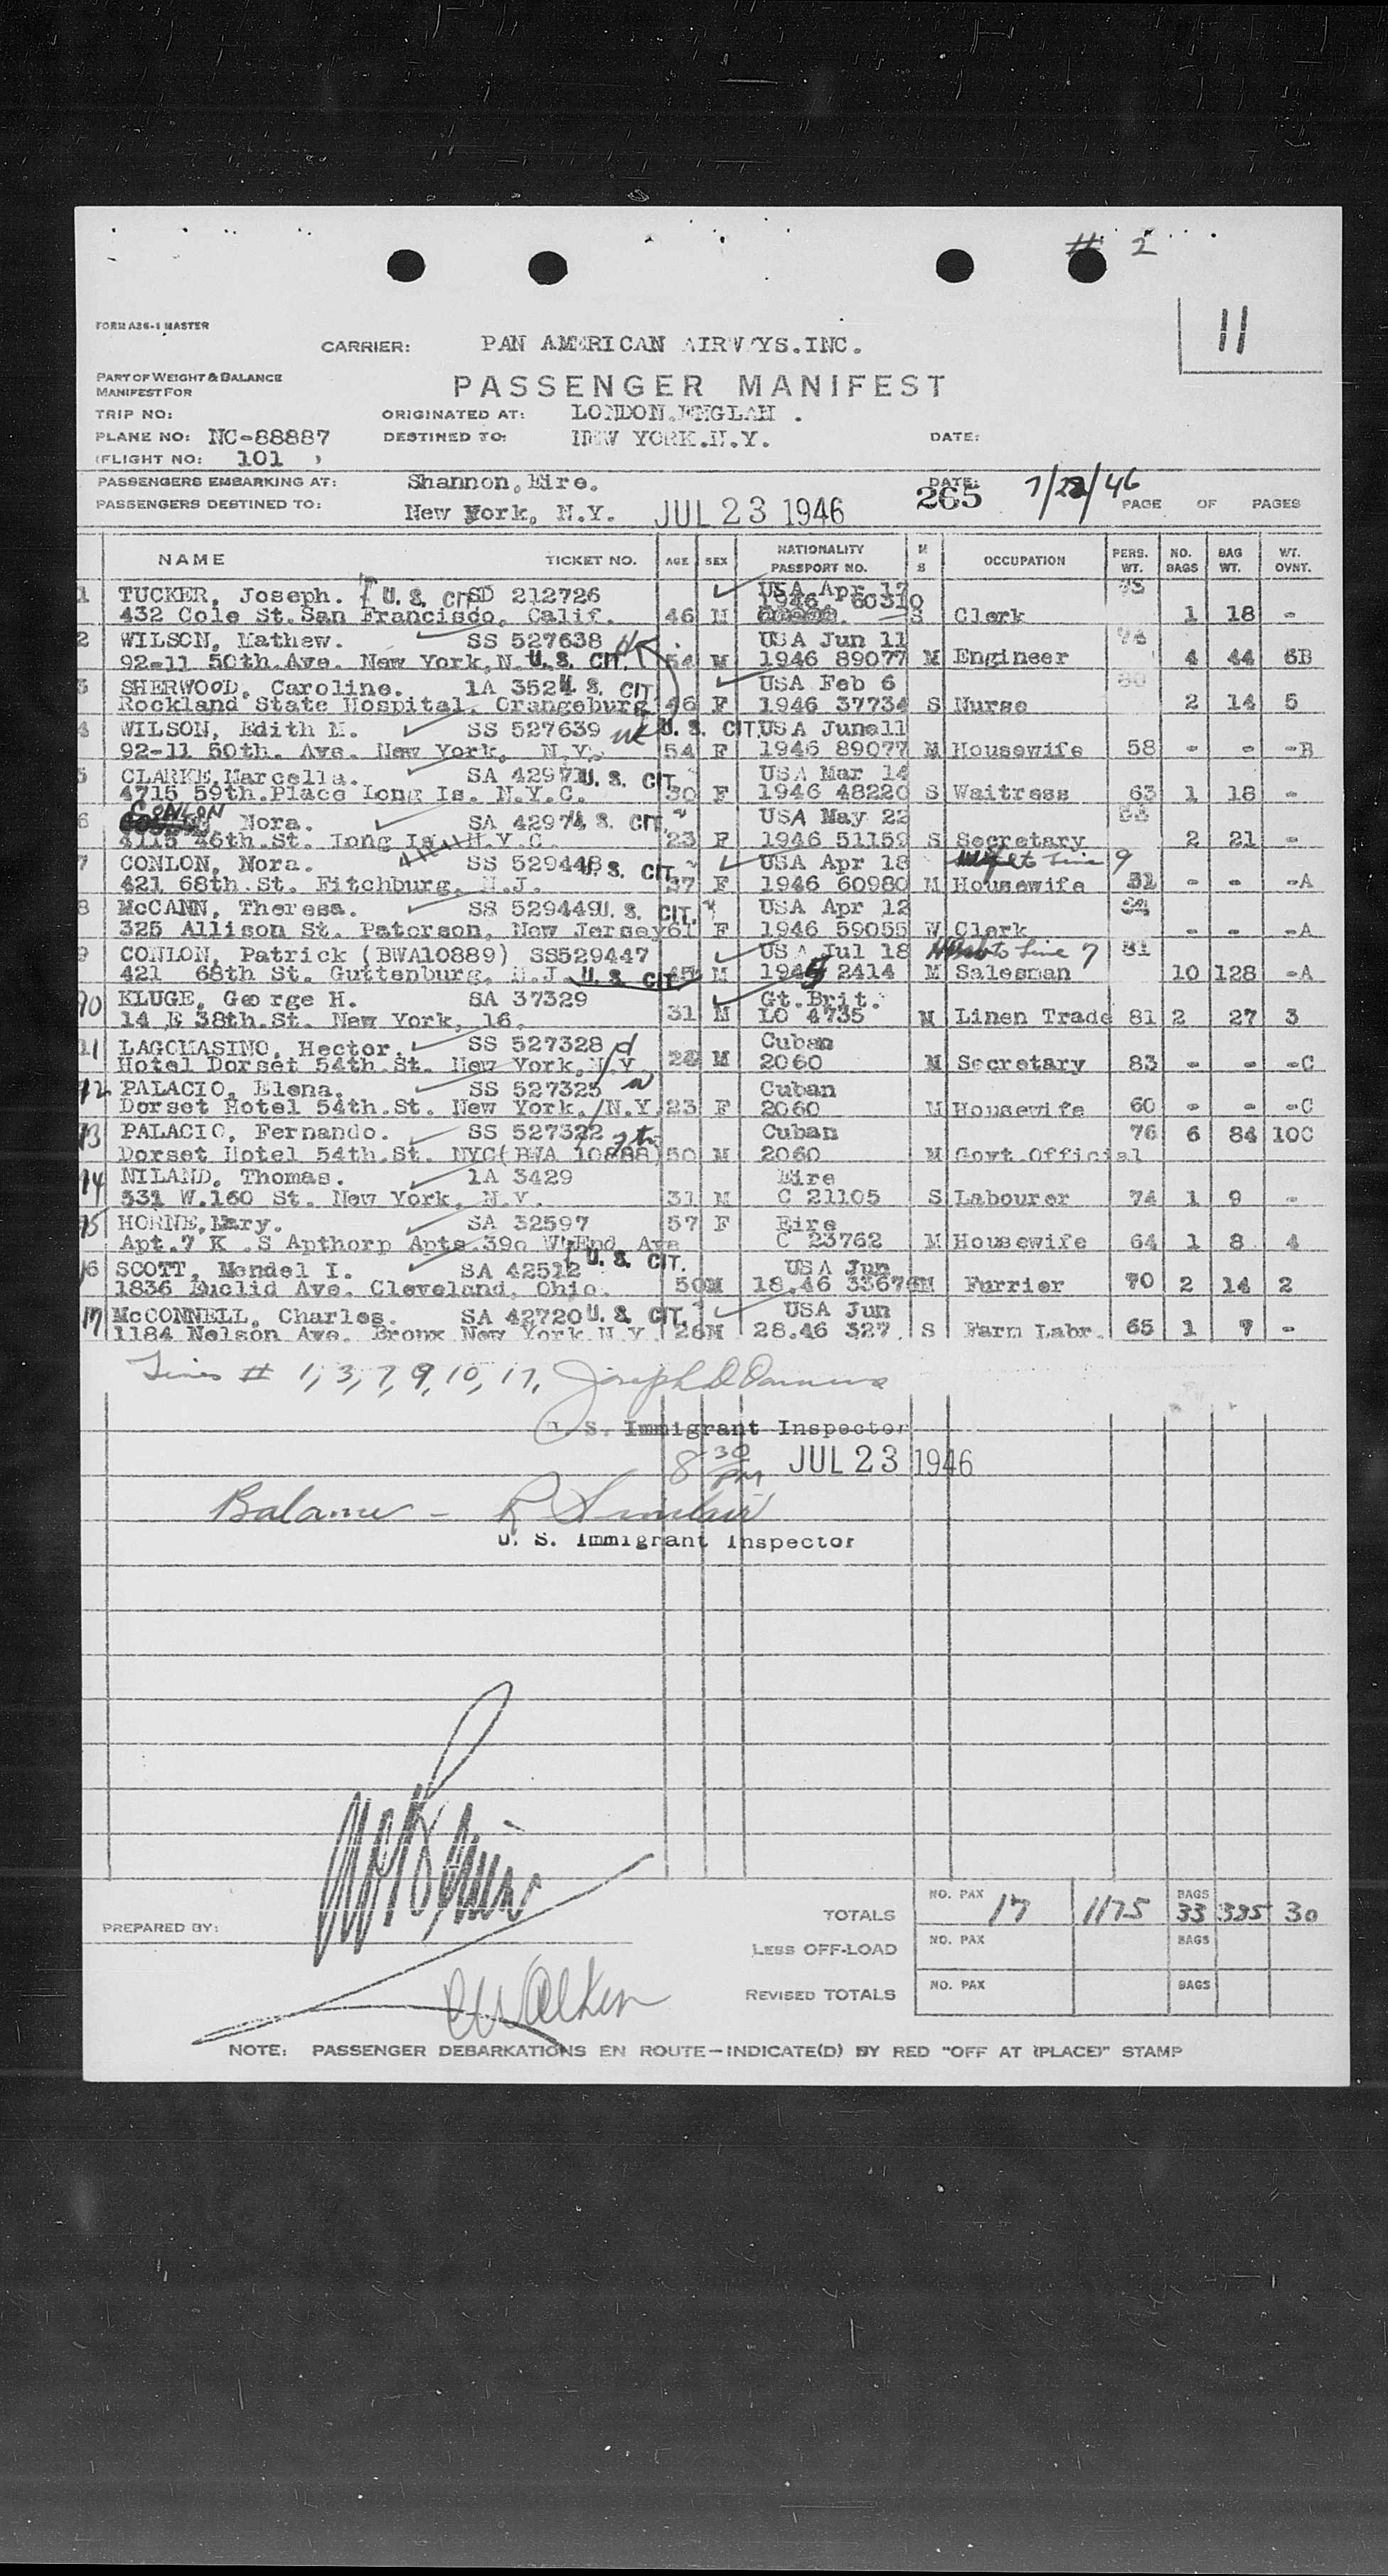 # 2
11
FORM A26-1 MASTER
CARRIER: PAN AMERICAN AIRW YS.INC.
PART OF WEIGHT & BALANCE
MANIFEST FOR
PASSENGER MANIFEST
TRIP NO: ORIGINATED AT: LONDON.ENGLAN .
PLANE NO: NC-88887 DESTINED TO: NEW YORK.N.Y. DATE:
(FLIGHT NO: 101 )
PASSENGERS EMBARKING AT: Shannon,Eire. DATE: 7/22/46
265 PAGE OF PAGES
PASSENGERS DESTINED TO: New York, N.Y. JUL 23 1946
NAME TICKET NO. AGE SEX NATIONALITY PASSPORT NO. M S OCCUPATION PERS. WT. NO. BAGS BAG WT. WT. OVNT.
1 TUCKER, Joseph. U. S. CIT SD 212726 USA Apr 17
432 Cole St.San Francisco, Calif. 46 M 1946 60310 S Clerk 1 18 -
2 WILSON, Mathew. SS 527638 USA Jun 11
92-11 50th.Ave. New York,N. U. S. CIT. 54 M 1946 89077 M Engineer 4 44 6B
3 SHERWOOD, Caroline. 1A 352 U. S. CIT USA Feb 6
Rockland State Hospital, Orangeburg 46 F 1946 37734 S Nurse 2 14 5
4 WILSON, Edith M. SS 527639 U. S. CIT. USA June11
92-11 50th. Ave. New York, N.Y. 54 F 1946 89077 M Housewife 58 - - -B
5 CLARKE,Marcella. SA 4297 U. S. CIT. USA Mar 14
4715 59th.Place Long Is. N.Y.C. 30 F 1946 48220 S Waitress 63 1 18 -
6 CONLON Nora. SA 42974 U. S. CIT. USA May 22
4115 46th.St. Long Is. N.Y.C. 23 F 1946 51159 S Secretary 2 21 -
7 CONLON, Nora. SS 529448 U. S. CIT. USA Apr 18 Wife to Line 9
421 68th.St. Fitchburg, N.J. 37 F 1946 60980 M Housewife 51 - - -A
8 McCANN, Theresa. SS 529449 U. S. CIT. USA Apr 12
325 Allison St. Paterson, New Jersey 61 F 1946 59055 W Clerk - - -A
9 CONLON, Patrick (BWA10889) SS529447 USA Jul 18 Husb to Line 7 81
421 68th St. Guttenburg, N.J. U. S. CIT. 45 M 1945 2414 M Salesman 10 128 -A
10 KLUGE, George H. SA 37329 Gt.Brit.
14 E 38th.St. New York, 16. 31 M LO 4735 M Linen Trade 81 2 27 3
11 LAGOMASINO, Hector. SS 527328 Cuban
Hotel Dorset 54th.St. New York, N.Y. 28 M 2060 M Secretary 83 - - -C
12 PALACIO, Elena. SS 527325 Cuban
Dorset Hotel 54th.St. New York, N.Y. 23 F 2060 M Housewife 60 - - -C
13 PALACIO, Fernando. SS 527322 Cuban 76 6 84 10C
Dorset Hotel 54th.St. NYC(BWA 10888) 50 M 2060 M Govt.Official
14 NILAND, Thomas. 1A 3429 Eire
531 W.160 St. New York, N.Y. 31 M C 21105 S Labourer 74 1 9 -
15 HORNE,Mary. SA 32597 57 F Eire
Apt.7 K .S Apthorp Apts.390 W.End Ave C 23762 M Housewife 64 1 8 4
16 SCOTT, Mendel I. SA 42512 U. S. CIT. USA Jun
1836 Euclid Ave. Cleveland, Ohio. 50 M 18.46 33674 M Furrier 70 2 14 2
17 McCONNELL, Charles. SA 42720 U. S. CIT. USA Jun
1184 Nelson Ave. Bronx New York N.Y. 26 M 28.46 327. S Farm Labr. 65 1 7 -
Lines # 1, 3, 7, 9, 10, 17, Joseph D
U. S. Immigrant Inspector
8 30 PM JUL 23 1946
Balance - R Sinclair
U. S. Immigrant Inspector
PREPARED BY:
TOTALS NO. PAX 17 1175 BAGS 33 395 30
LESS OFF-LOAD NO. PAX BAGS
REVISED TOTALS NO. PAX BAGS
NOTE: PASSENGER DEBARKATIONS EN ROUTE—INDICATE(D) BY RED "OFF AT (PLACE)" STAMP